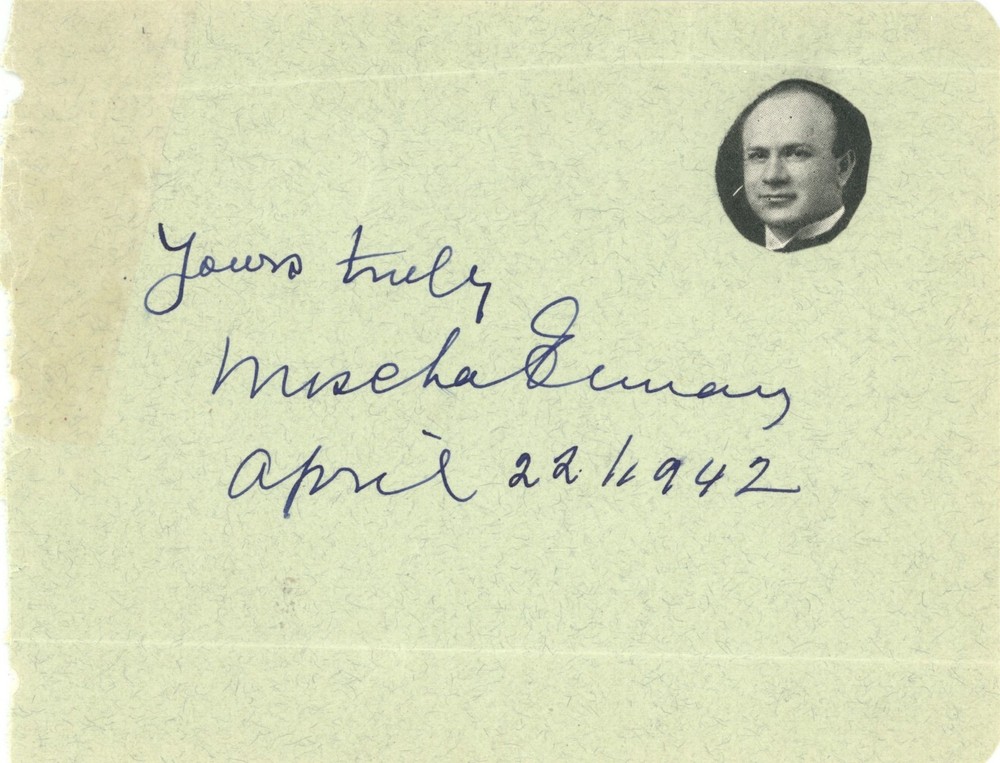 Yours truly
Mischa
April 22/1942